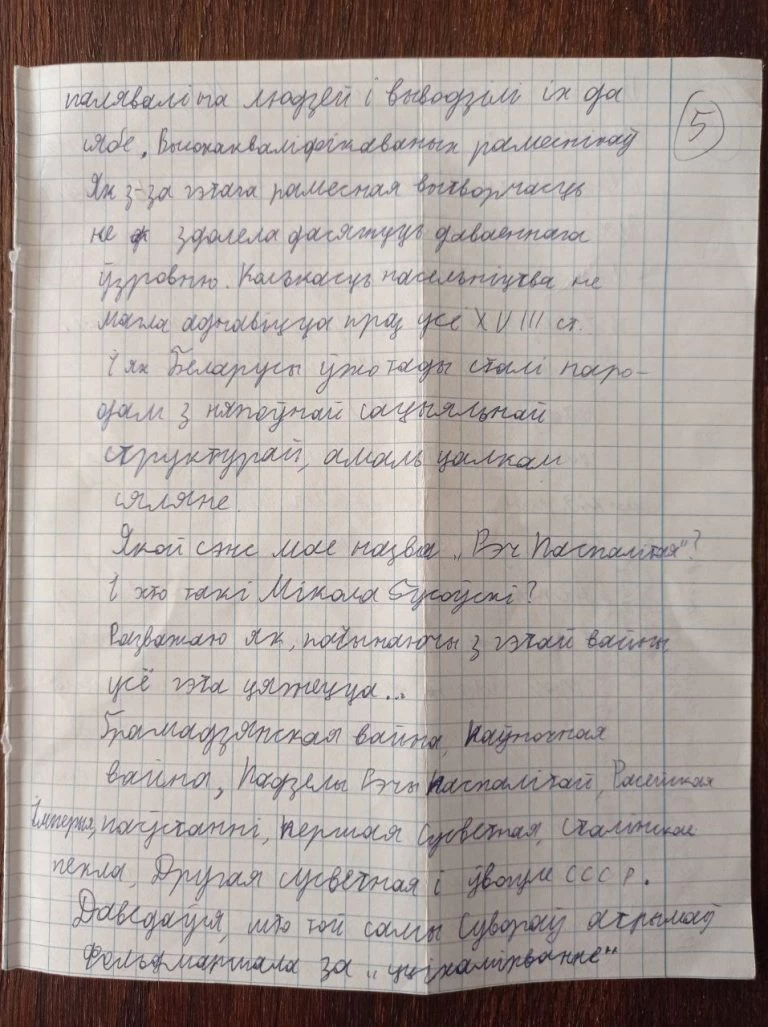 палявалі на людзей і выводзілі іх да
сябе. Высокакваліфікаваных рамеснікаў
Як з-за гэтага рамесная вытворчасць
не здолела дасягнуць даваеннага
ўзроўню. Колькасць насельніцтва не
магла аднавіцца праз усё XVIII ст.
І як Беларусы ўжо тады сталі наро-
дам з няпоўнай сацыяльнай
структурай, амаль цалкам
сяляне.
Якой сэнс мае назва „Рэч Паспалітая"?
І хто такі Мікола Гусоўскі?
Разважаю як, пачынаючы з гэтай вайны
усё гэта цяжецца...
Грамадзянская вайна, Паўночная
вайна, Падзелы Рэчы Паспалітай, Расейская
Імперыя, паўстанні, Першая Сусветная, Сталінскае
пекла, Другая сусветная і ўвогуле СССР.
Даведаўся, што той самы Сувораў атрымаў
Фельдмаршала за „уціхамірванне"
5